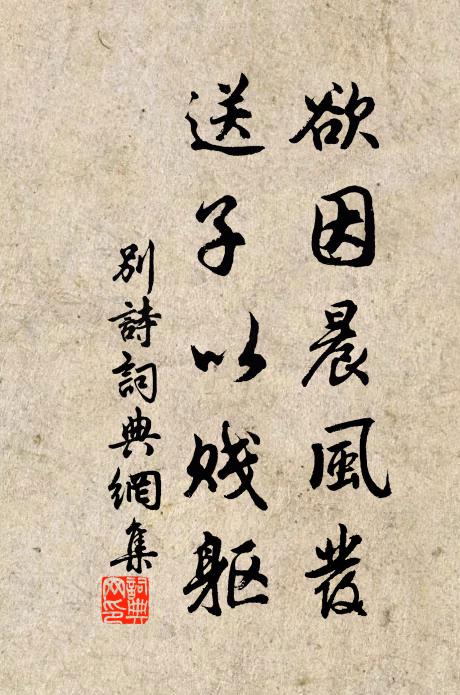 欲因晨風發
送子以賤軀
別詩詞典網集
詞典
网印